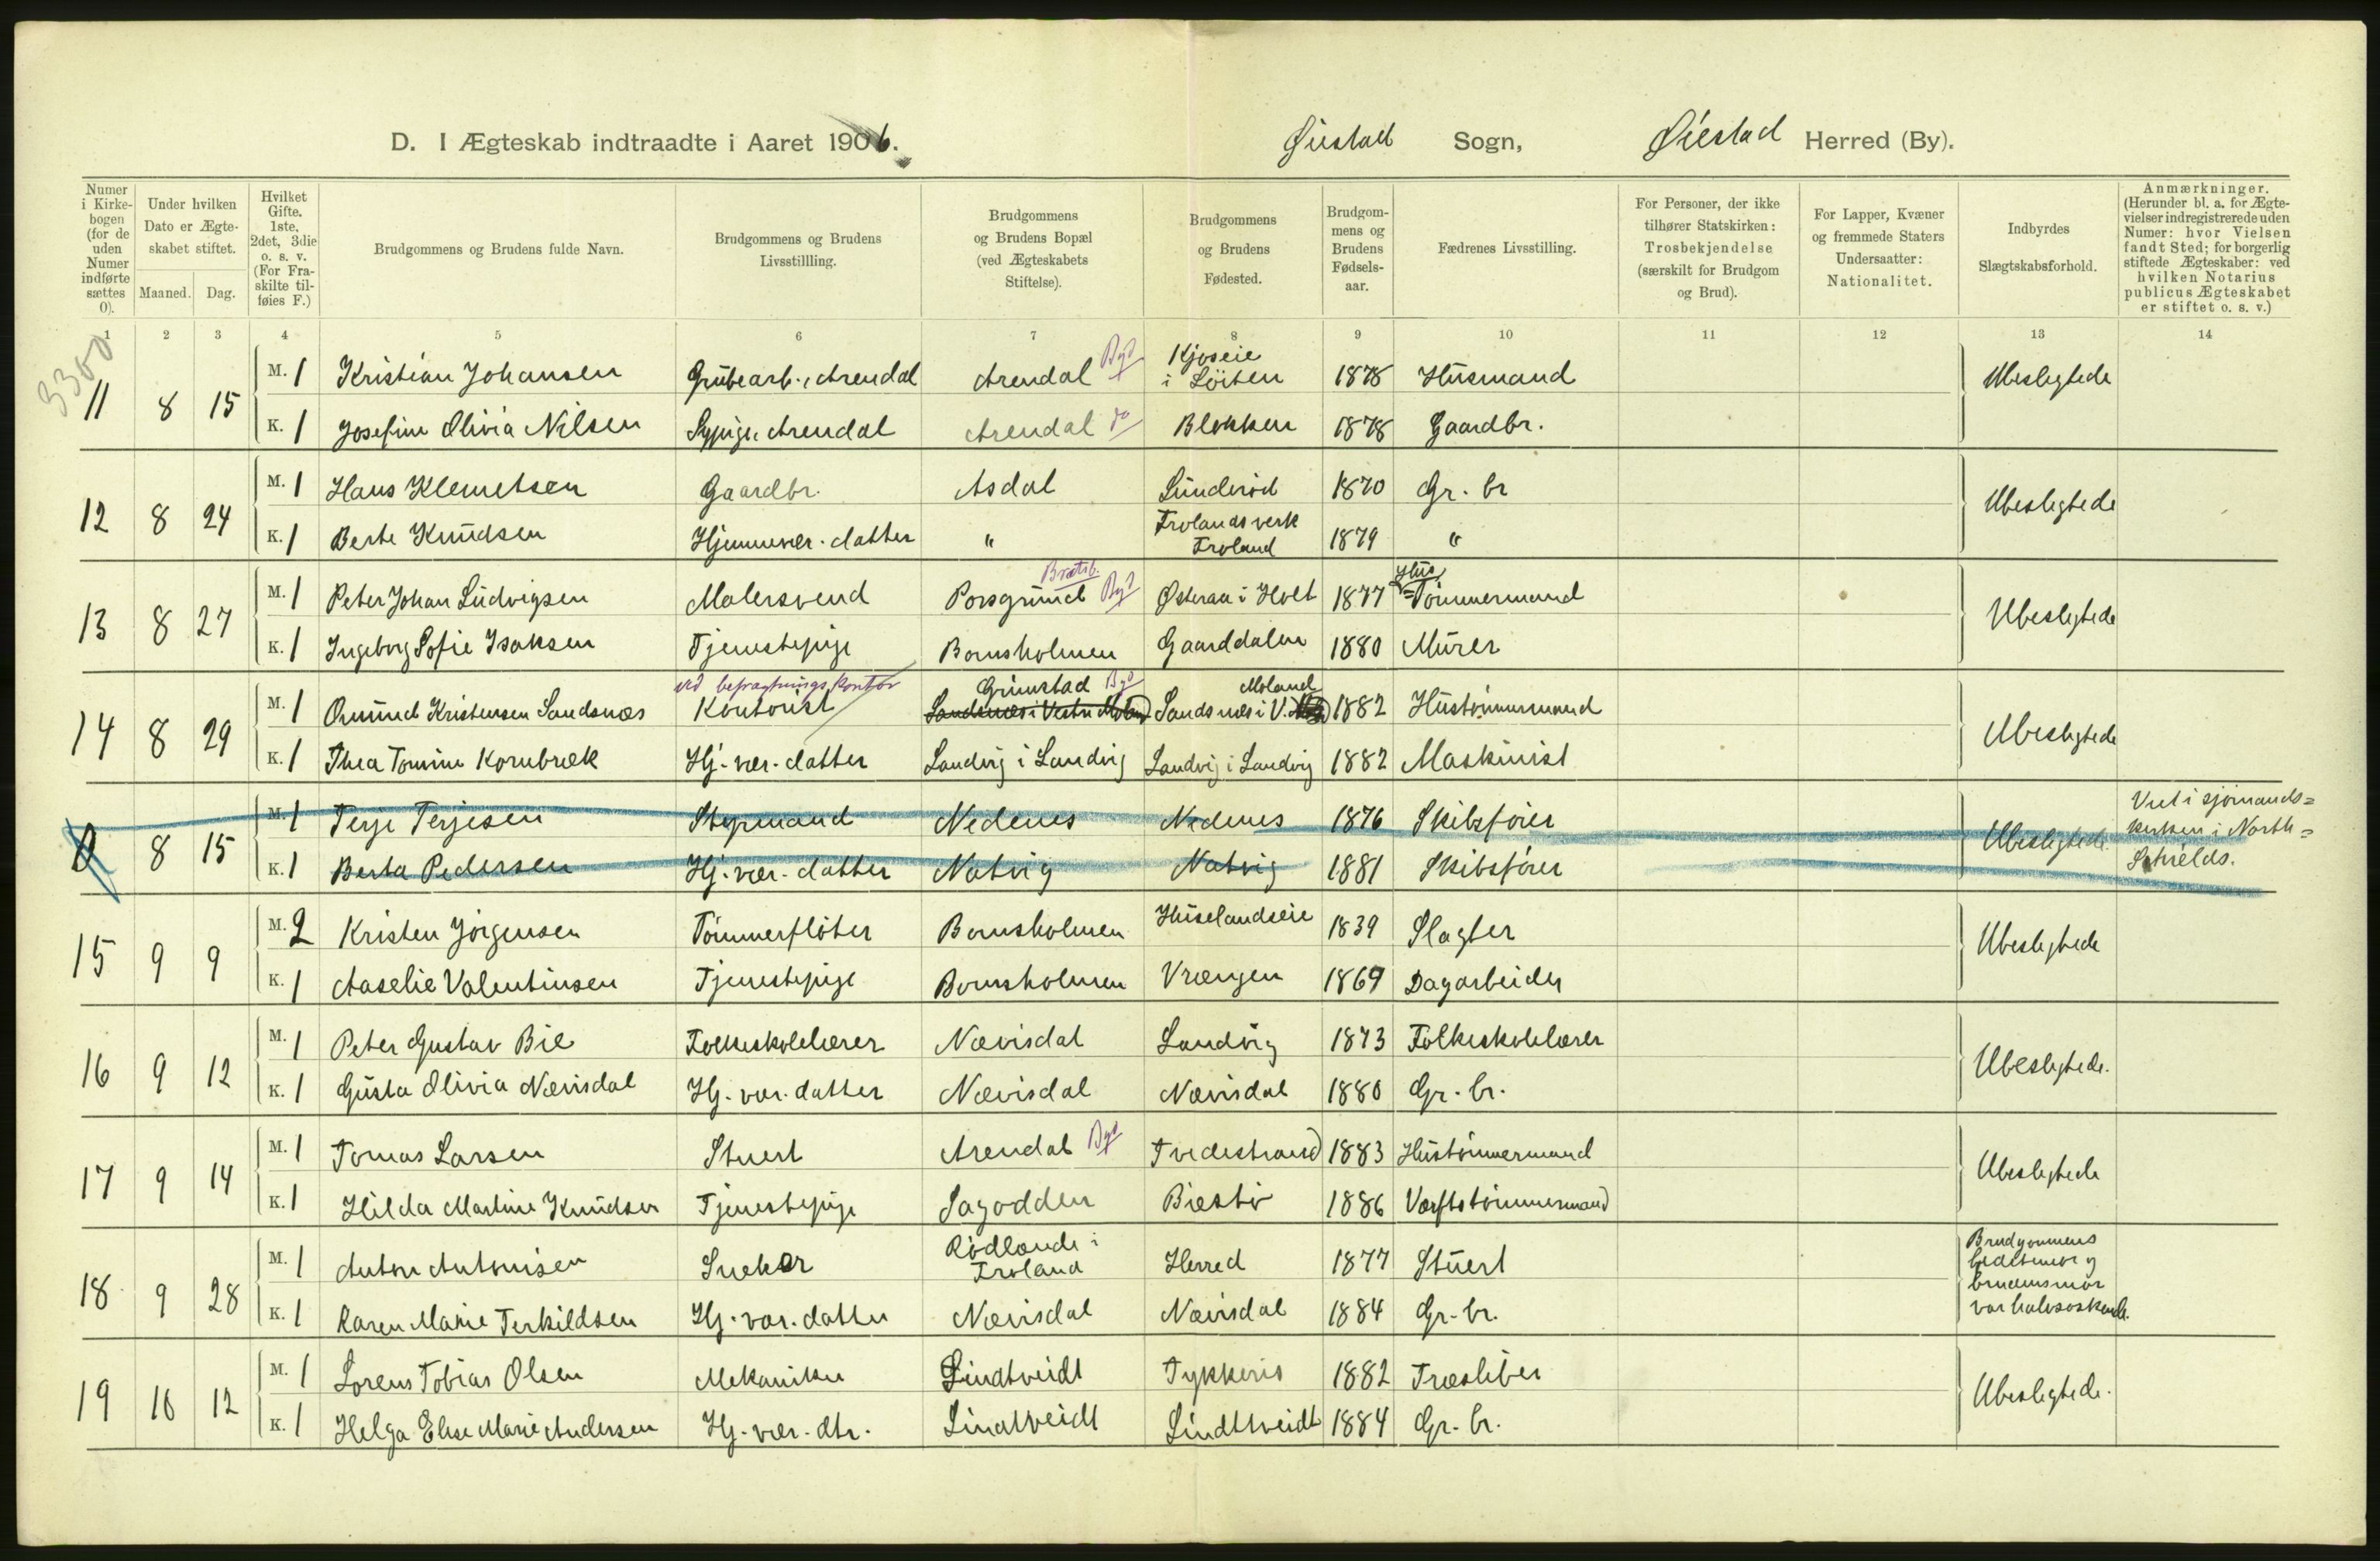 D. I Ægteskab indtraadte i Aaret 1906. Øiestad Sogn, Øiestad Herred (By).
Numer i Kirkebogen (for de uden Numer indførte sættes 0).
Under hvilken Dato er Ægteskabet stiftet.
Maaned. Dag.
Hvilket Gifte. 1ste, 2det, 3die o. s. v. (For Fraskilte tilføies F.)
Brudgommens og Brudens fulde Navn.
Brudgommens og Brudens Livsstillling.
Brudgommens og Brudens Bopæl (ved Ægteskabets Stiftelse).
Brudgommens og Brudens Fødested.
Brudgommens og Brudens Fødselsaar.
Fædrenes Livsstilling.
For Personer, der ikke tilhører Statskirken: Trosbekjendelse (særskilt for Brudgom og Brud).
For Lapper, Kvæner og fremmede Staters Undersaatter: Nationalitet.
Indbyrdes Slægtskabsforhold.
Anmærkninger. (Herunder bl. a. for Ægtevielser indregistrerede uden Numer: hvor Vielsen fandt Sted; for borgerlig stiftede Ægteskaber: ved hvilken Notarius publicus Ægteskabet er stiftet o. s. v.)
1 2 3 4 5 6 7 8 9 10 11 12 13 14
3300
11 8 15 M. 1 Kristian Johansen Grubearb. i Arendal Arendal Byd Kjoseie i Löiten 1878 Husmand Ubeslegtede
K. 1 Josefine Olivia Nilsen Sypige Arendal Arendal do Blokken 1878 Gaardbr.
12 8 24 M. 1 Hans Klemetsen Gaardbr. Asdal Lunderöd 1870 Gr. br Ubeslegtede
K. 1 Berte Knudsen Hjemmevær. datter " Frolands verk Froland 1879 "
13 8 27 M. 1 Peter Johan Ludvigsen Malersvend Porsgrund Bratsb. Byd Østeraa i Holt 1877 Hus=Tömmermand Ubeslegtede
K. 1 Ingeborg Sofie Isaksen Tjenestepige Bomsholmen Gaarddalen 1880 Murer
14 8 29 M. 1 Omund Kristensen Sandsnæs ved befragtningskontor Kontorist Grimstad Byd Sandsnæs i Vestre Moland Sandsnæs i V. Moland 1882 Hustömmermand Ubeslegtede
K. 1 Thea Tomine Kornbrek Hj. vær. datter Landvig i Landvig Landvig i Landvig 1882 Maskinist
0 8 15 M. 1 Terje Terjesen Styrmand Nedenes Nedenes 1876 Skibsförer Ubeslegtede Viet i sjömands=kirken i North=Schields.
K. 1 Berta Pedersen Hj. vær. datter Natvig Natvig 1881 Skibsförer
15 9 9 M. 2 Kristen Jörgensen Tömmerflöter Bomsholmen Huselandseie 1839 Slagter Ubeslegtede
K. 1 Aaselie Valentinsen Tjenestepige Bomsholmen Vrængen 1869 Dagarbeider
16 9 12 M. 1 Peter Gustav Bie Folkeskolelærer Nævisdal Landvig 1873 Folkeskolelærer Ubeslegtede.
K. 1 Gusta Olivia Nævisdal Hj. vær. datter Nævisdal Nævisdal 1880 Gr. br.
17 9 14 M. 1 Tomas Larsen Stuert Arendal Byd Tvedestrand 1883 Hustömmermand Ubeslegtede
K. 1 Hilda Martine Knudsen Tjenestepige Sagodden Biestö 1886 Værftstömmermand
18 9 28 M. 1 Anton Antonisen Snekker Rödlande i Froland Herred 1877 Stuert Brudgommens bedstemor og brudens mor var halvsöskende.
K. 1 Karen Marie Terkildsen Hj. vær. datter Nævisdal Nævisdal 1884 Gr. br.
19 10 12 M. 1 Lorens Tobias Olsen Mekaniker Lindtveidt Tykkeris 1882 Træsliber Ubeslegtede.
K. 1 Helga Elise Marie Andersen Hj. vær. dtr. Lindtveidt Lindtveidt 1884 Gr. br.